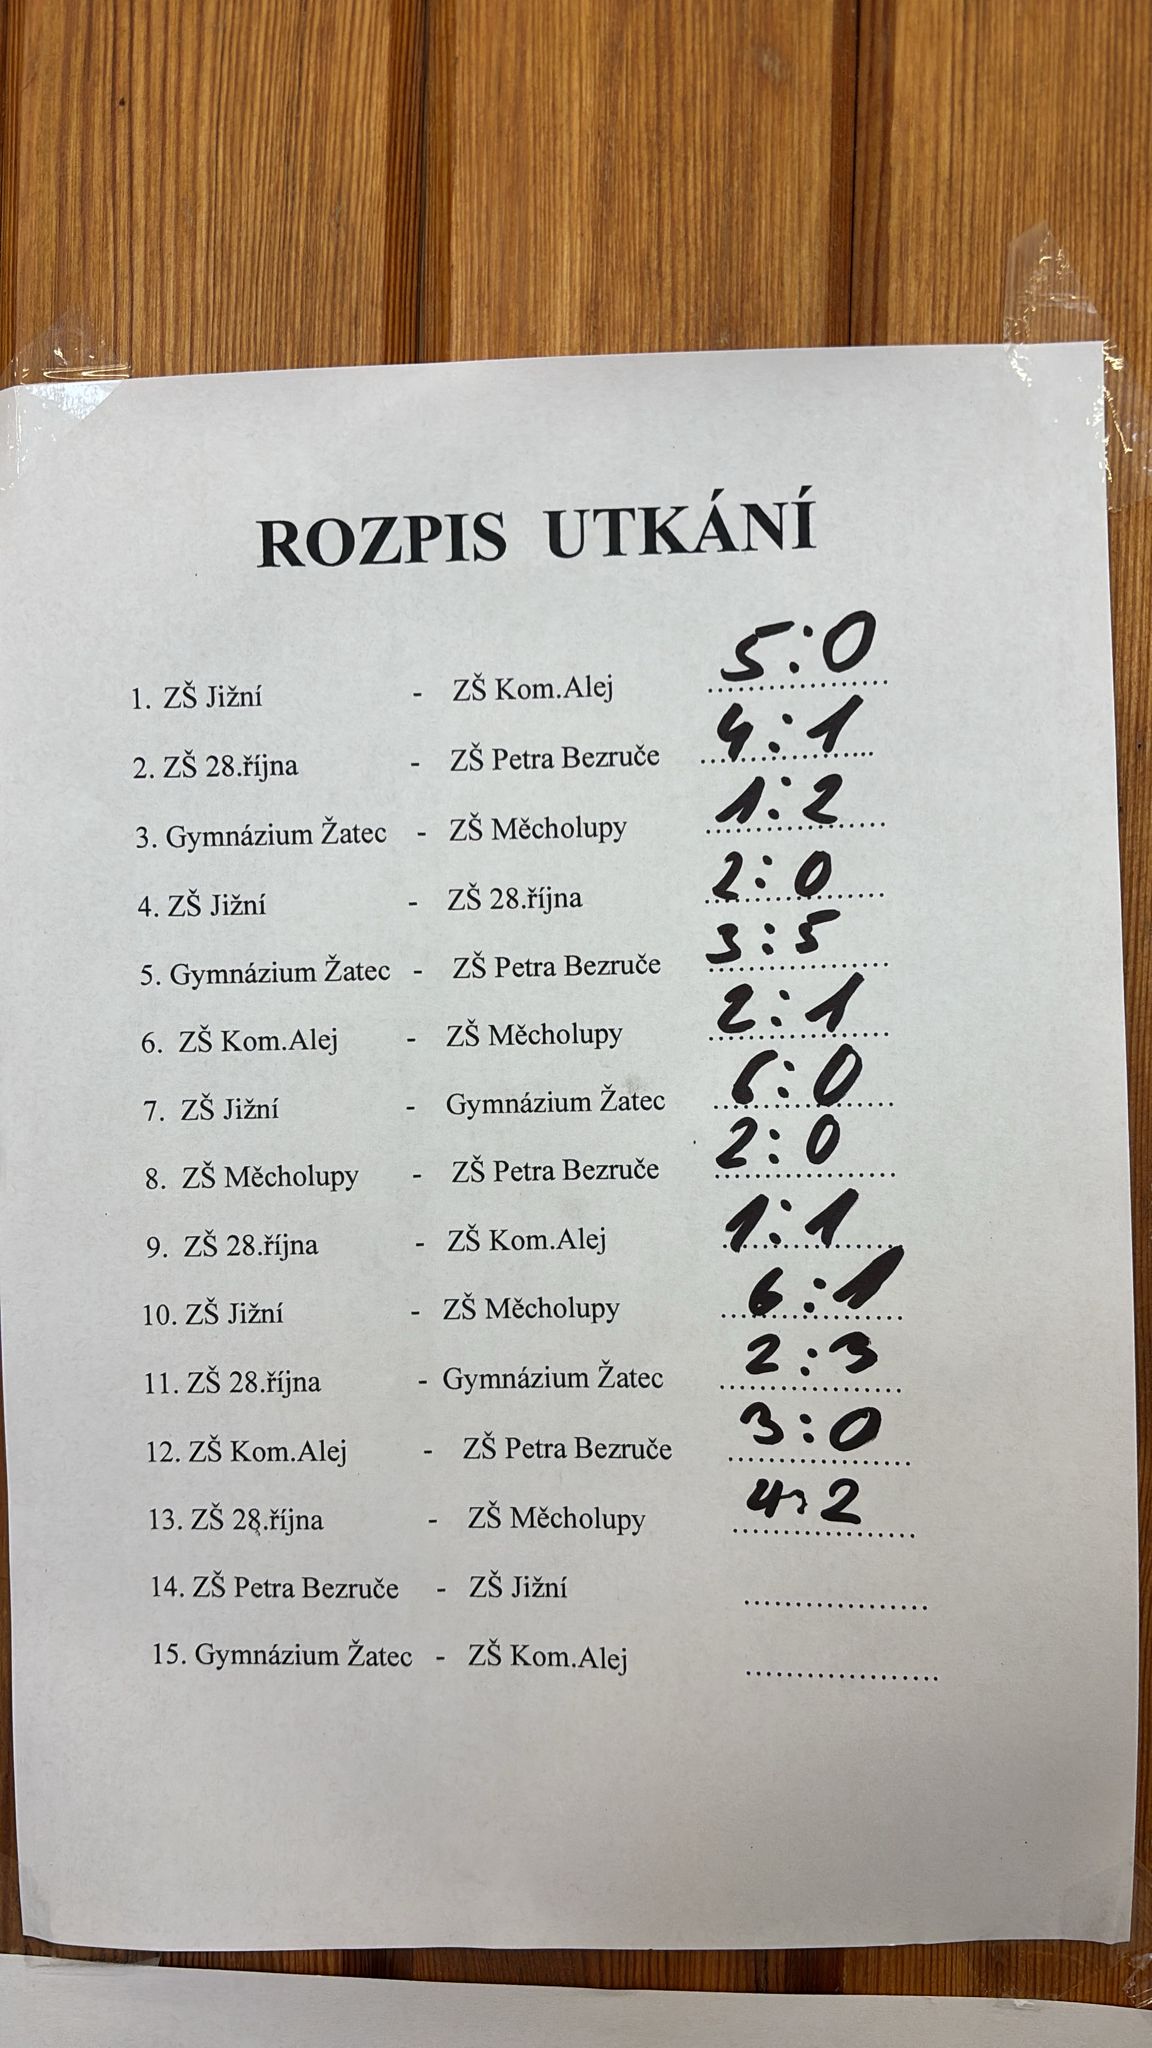 ROZPIS UTKÁNÍ
1. ZŠ Jižní - ZŠ Kom.Alej 5:0
2. ZŠ 28.října - ZŠ Petra Bezruče 4:1
3. Gymnázium Žatec - ZŠ Měcholupy 1:2
4. ZŠ Jižní - ZŠ 28.října 2:0
5. Gymnázium Žatec - ZŠ Petra Bezruče 3:5
6. ZŠ Kom.Alej - ZŠ Měcholupy 2:1
7. ZŠ Jižní - Gymnázium Žatec 6:0
8. ZŠ Měcholupy - ZŠ Petra Bezruče 2:0
9. ZŠ 28.října - ZŠ Kom.Alej 1:1
10. ZŠ Jižní - ZŠ Měcholupy 6:1
11. ZŠ 28.října - Gymnázium Žatec 2:3
12. ZŠ Kom.Alej - ZŠ Petra Bezruče 3:0
13. ZŠ 28.října - ZŠ Měcholupy 4:2
14. ZŠ Petra Bezruče - ZŠ Jižní ..................
15. Gymnázium Žatec - ZŠ Kom.Alej ..................